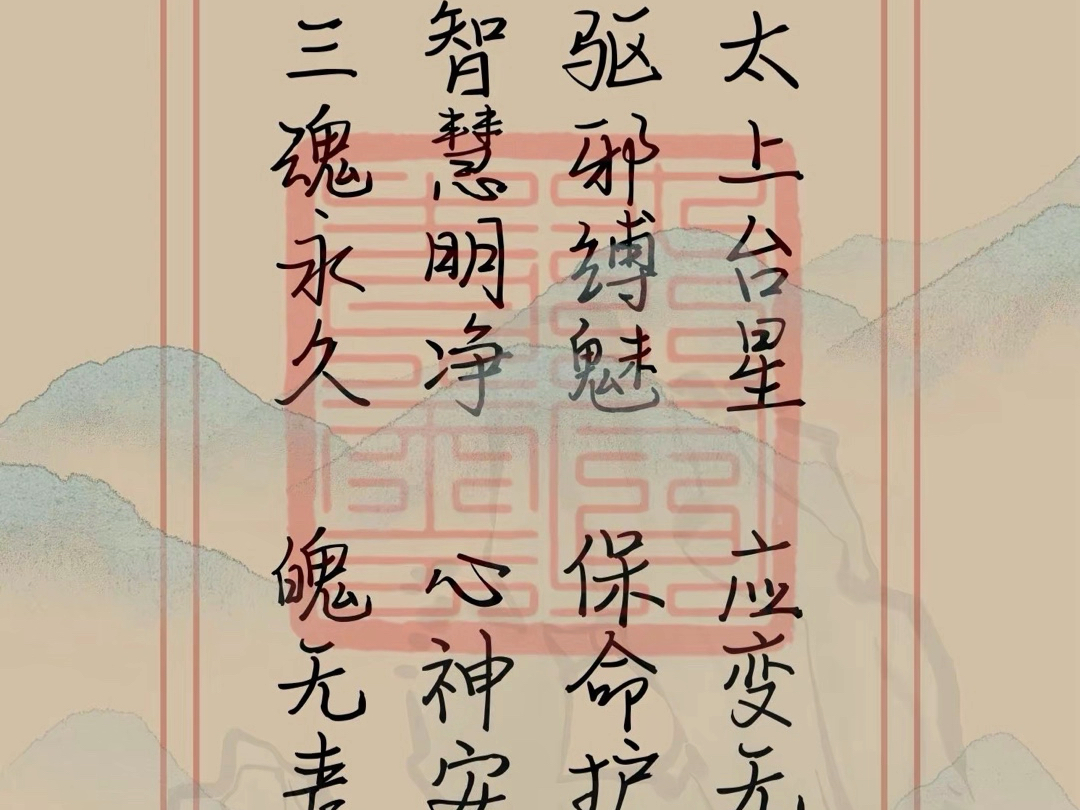 太上台星 应变无
驱邪缚魅 保命护
智慧明净 心神安
三魂永久 魄无